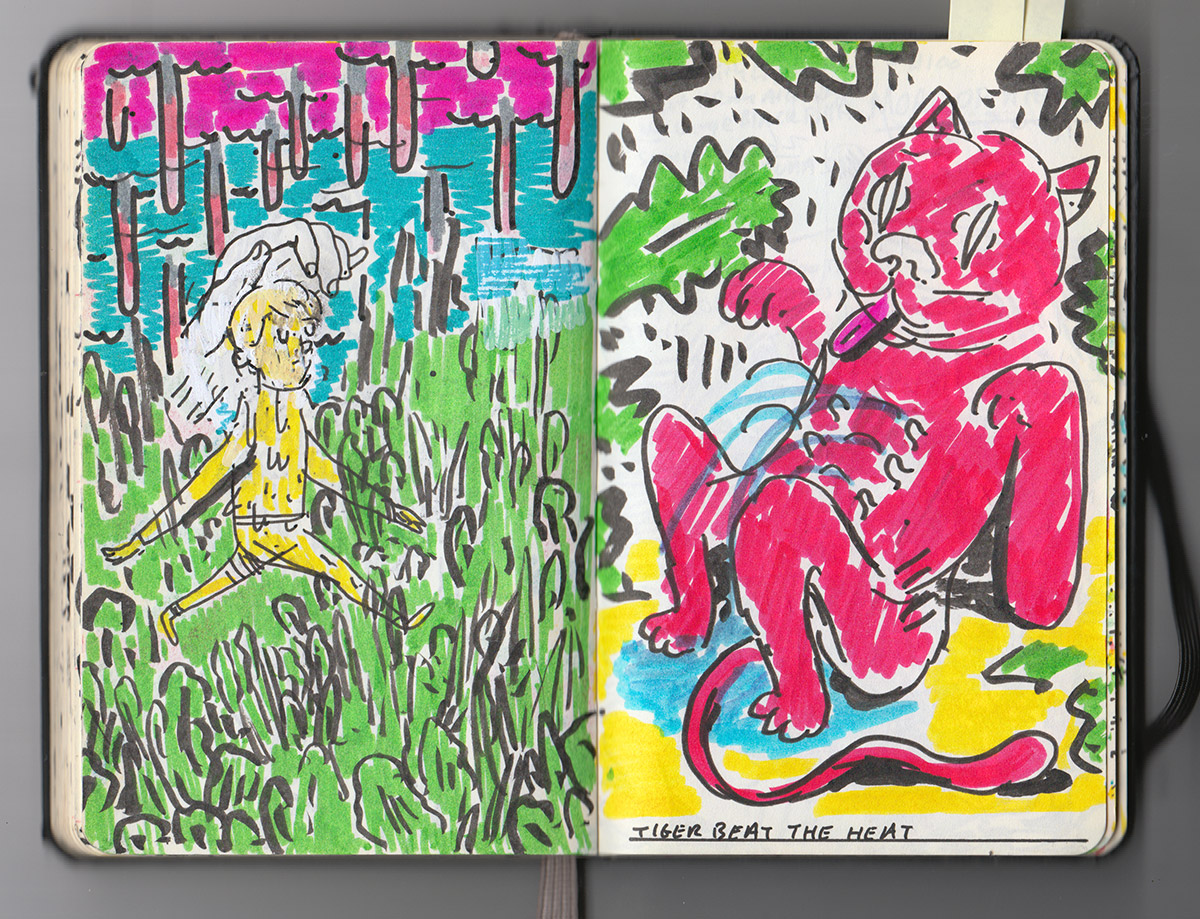 TIGER BEAT THE HEAT